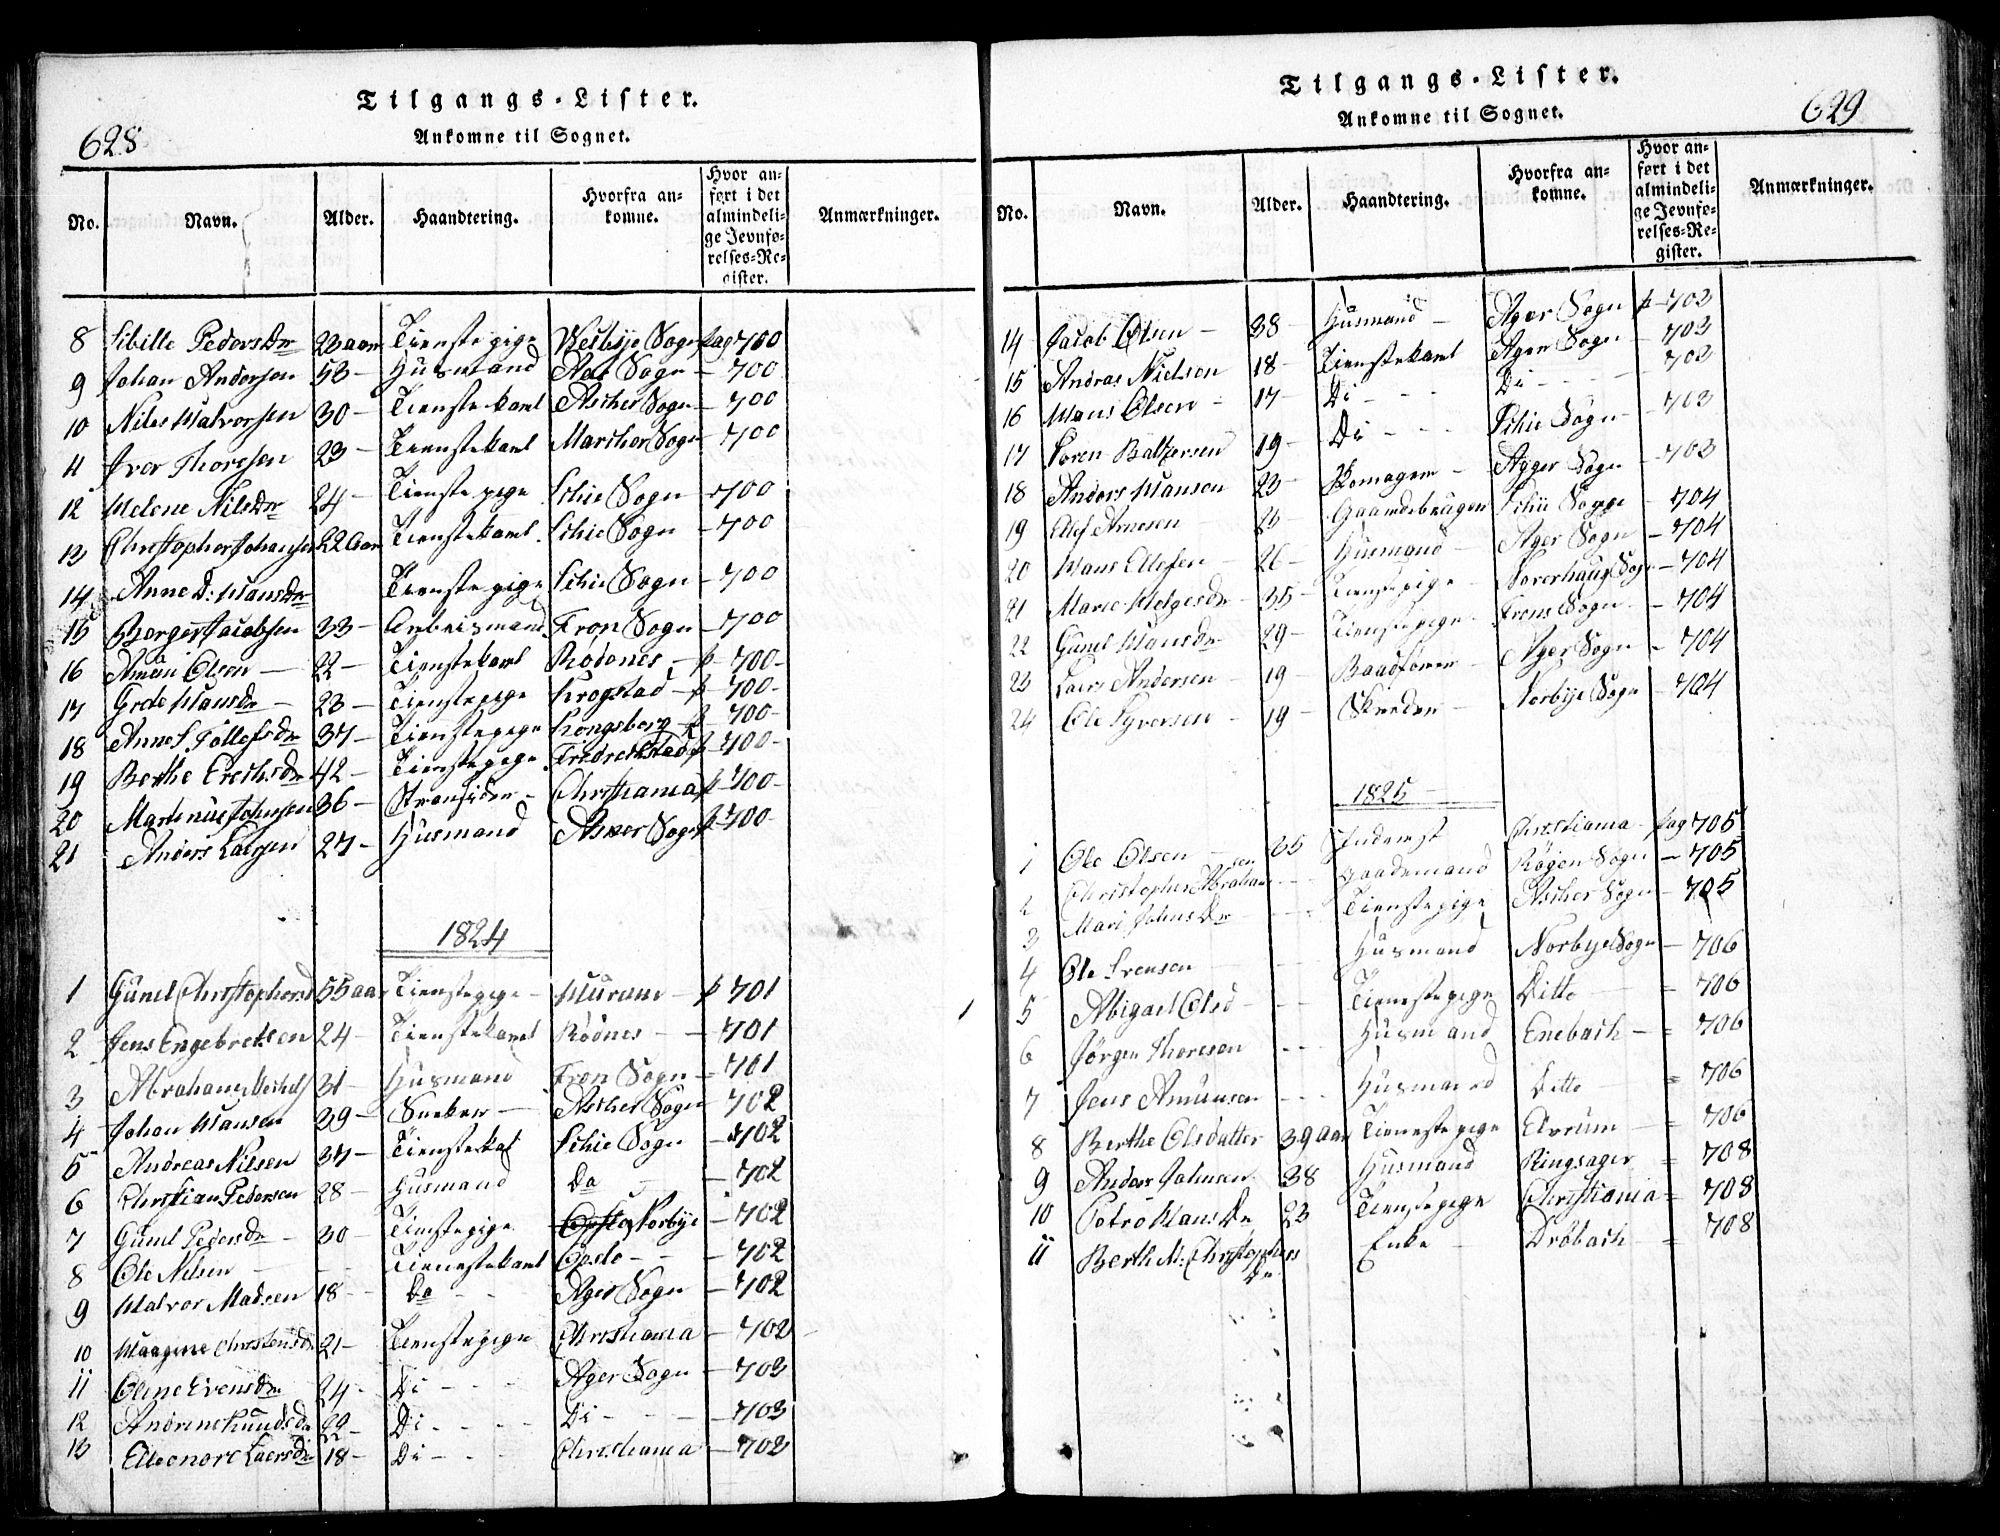 628
Tilgangs-Lister.
Ankomne til Sognet.
No. Navn. Alder. Haandtering. Hvorfra ankomne. Hvor anført i det almindelige Jevnførelses-Register. Anmærkninger.
8 Sibille PedersDr 23 aar Tienstepige Westbye Sogn pag 700
9 Johan Andersen 53 – Husmand Aas Sogn – 700
10 Niles Halvorsen 30 – Tienstekarl Ascher Sogn – 700
11 Iver Thoresen 23 – Tienstekarl Sogn – 700
12 Helene NilsDr 24 – Tienstepige Schie Sogn – 700
13 Christopher Johansen 22 Aar Tienstekarl Schie Sogn – 700
14 Anne D: HansDr Tienstepige Schie Sogn – 700
15 Borger Jacobsen 33 – Arbeismand Fron Sogn – 700
16 Olsen – 22 – Tienstekarl Rødenes – p – 700 –
17 Grete HansDr – 23 – Tienstepige Krogstad – p – 700 –
18 Anne S. TollefsDr 37 – Tienstepige Kongsberg – p 700 –
19 Berthe ErichsDr 42 – Tienstepige Fredrichstad p – 700 –
20 Martinus Johnsen 36 – Christiania p – 700 –
21 Anders Larsen 27 – Husmand Asker Sogn p – 700
1824
1 Gunel Christophersd 55 aar Tienstepige – Hurum – p 701
2 Jens Engebretsen 24 – Tienstekarl Rødnes – – 701
3 Abraham 31 – Husmand Fron Sogn – 701
4 Johan Hansen 39 – Sneker – Ascher Sogn 702
5 Andreas Nilsen 34 – Tienstekal Schie Sogn – 702
6 Christian Pedersen 28 – Husmand Do – 702
7 Gunel PedersDr – 30 – Tienstepige Norbye – 702
8 Ole Nilsen – Tienestekarl Opslo – – 702
9 Halvor Madsen 18 – Do – – Ager Sogn – 702
10 Haagine ChristensDr 21 – Tienstepige Christiania – 702
11 Oline EvensDr 24 – Di – – – Ager Sogn – 703
12 Andrine KnudsDr 22 – Di – – – Di – – – 703
13 Eleonore LarsDr 18 – Di – – – Christiania – 703
629
Tilgangs-Lister.
Ankomne til Sognet.
No. Navn. Alder. Haandtering. Hvorfra ankomne. Hvor anført i det almindelige Jevnførelses-Register. Anmærkninger.
14 Jacob Olsen – 38 – Husmand – Ager Sogn p – 703
15 Andras Nielsen 18 – Tienstekarl Ager Sogn – 703
16 Hans Olsen – 17 – Di – – – Di – – – 703
17 Soren Baltzersen 19 – Di – – – Schie Sogn – 703
18 Anders Hansen 23 – – Agger Sogn – 703
19 Olef Arnesen Gaardsbrugen Schie Sogn – 704
20 Hans Ellefsen – 26 – Husmand – Ager Sogn – 704
21 Marie HelgesDr – 35 – Tienstepige – Sogn – 704
22 Gunel HansDr – 29 – Tienstepige – Frons Sogn – – 704
23 Lars Andersen – 19 – Baadfører – Ager Sogn – 704
24 Ole Syversen – 19 – Skreder – Norbye Sogn – 704
1825
1 Ole Olsen – 65 Inderst Christiania – pag 705
2 Christopher Abrahamsen – – – Gaademand Røgen Sogn – 705
3 Mari JohnsDr – – – Tienstepige Ascher Sogn – 705
4 Ole Svensen – Husmand Norbye Sogn – 706
5 Abigael Olsd – – – Tienestepige Ditto – = 706
6 Jørgen Thoresen – – – Husmand Enebach – = 706
7 Jens Amunsen – – – Husmand Ditto – = 706
8 Berthe Olsdatter 39 Aar Tienestepige Elvrum – = 706
9 Anders Johnsen 38 Husmand Ringsager = 708
10 Petro HansDr 23 Tienstepige Christiania = 708
11 Berth M: Christophers Dr Enke – Drøbach – = 708